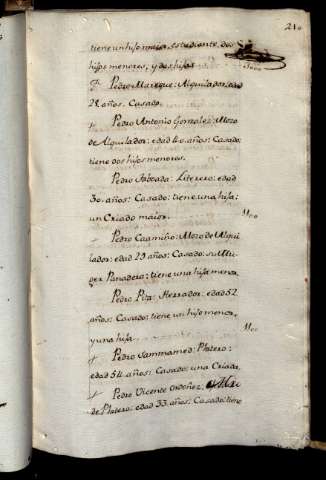 21
tiene un hijo maior, estudiante, dos
hijos menores, y dos hijas
Pedro Manrique: Alquilador, edad
28 años. Casado.
+ Pedro Antonio Gonzalez: Mozo
de Alquilador: edad 60 años: Casado:
tiene dos hijos menores.
Pedro Taboada: Literero: edad
30 años: Casado: tiene una hija:
un Criado maior.
+ Pedro Caamiño: Mozo de Alqui
lador: edad 29 años: Casado: su Mu
ger Panadera: tiene una hija menor.
Pedro Pita: Herrador: edad 52
años: Casado: tiene un hijo menor,
y una hija
+ Pedro Sammamed: Platero:
edad 54 años: Casado: una Criada.
+ Pedro Vicente Ordoñez:
de Platero: edad 33 años: Casado: tiene